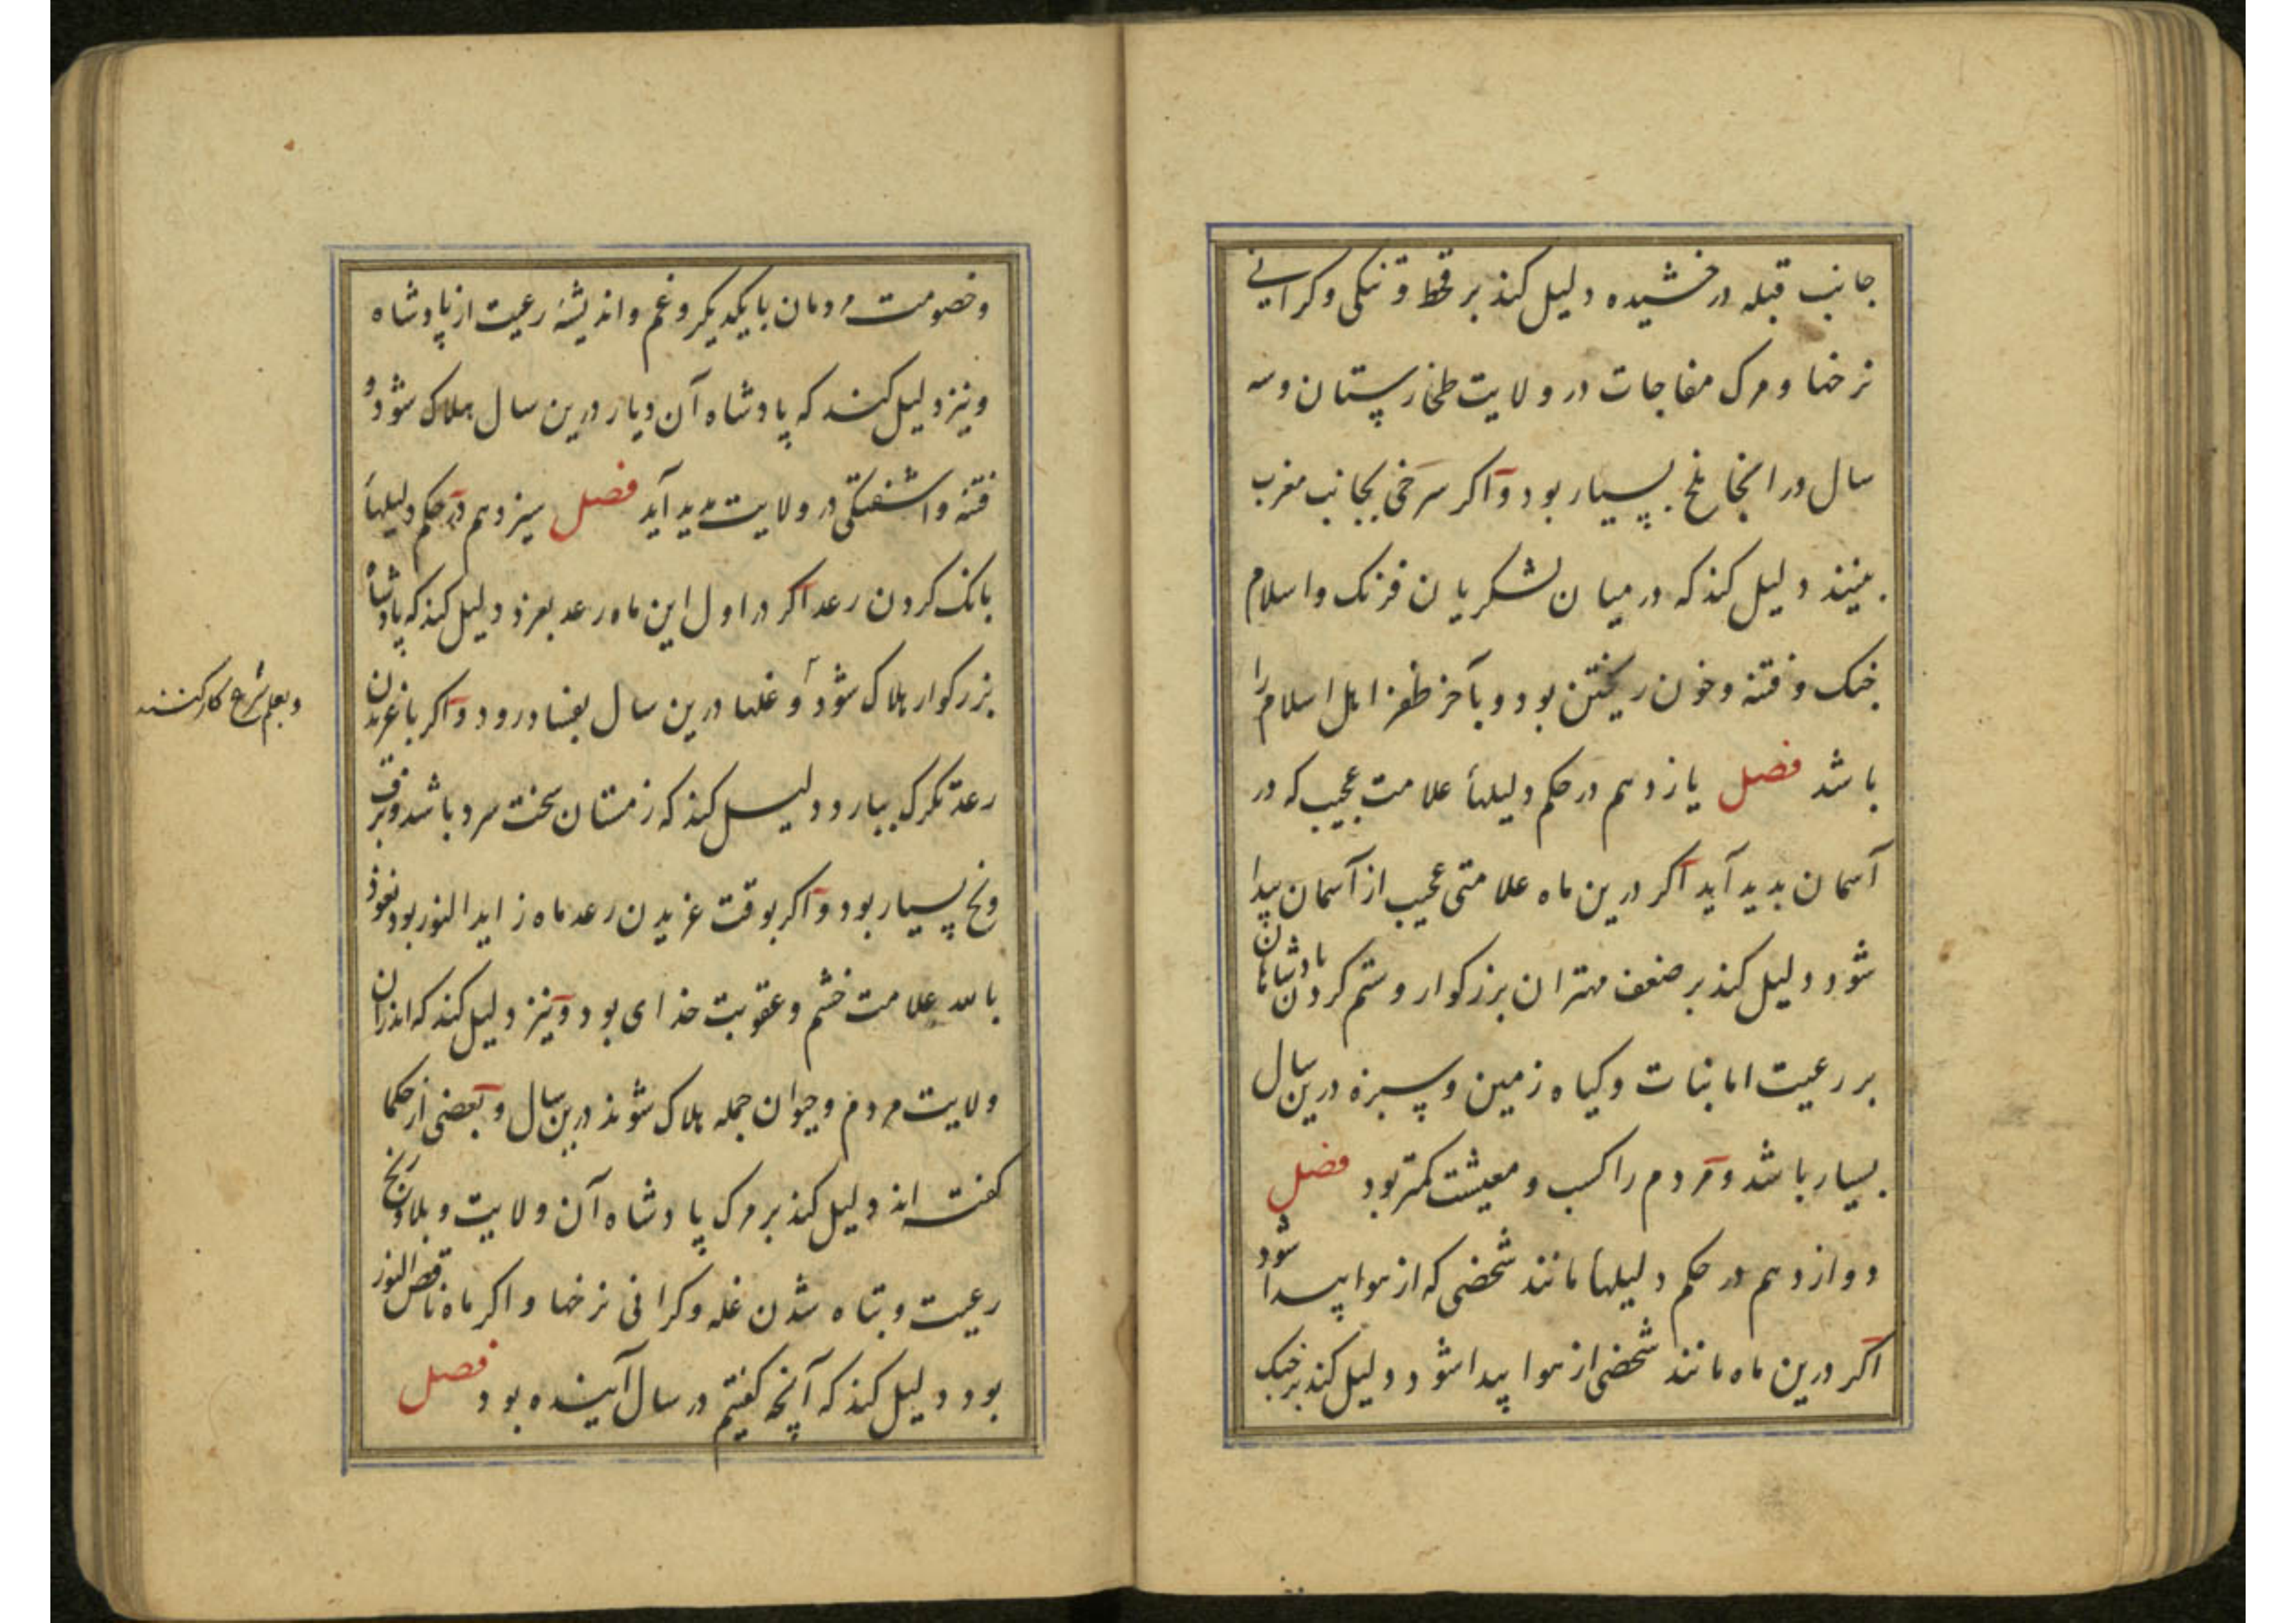 جانب قبله درخشیده دلیل کند بر قحط و تنکی و کرانی
نرخها و مرک مفاجات در ولایت طخارستان و سه
سال در انجا ملخ بسیار بود و اکر سرخی بجانب مغرب
بینند دلیل کند که در میان لشکریان فرنک و اسلام
جنک و فتنه و خون ریختن بود و بآخر ظفر اهل اسلام را
باشد فصل یازدهم در حکم دلیلهاء علامت عجیب که در
آسمان بدید آید اکر درین ماه علامتی عجیب از آسمان پیدا
شود دلیل کند بر ضعف مهتران بزرکوار و ستم کردن پادشاهان
بر رعیت اما نبات و کیاه زمین و سبزه درین سال
بسیار باشد و مردم را کسب و معیشت کمتر بود فصل
دوازدهم در حکم دلیلهاء مانند شخصی که از هوا پیدا شود
اکر درین ماه مانند شخصی از هوا پیدا شود دلیل کند بر جنک
و خصومت مردمان با یکدیکر و غم و اندیشهٔ رعیت از پادشاه
و نیز دلیل کند که پادشاه آن دیار درین سال هلاک شود و
فتنه و اشفتکی در ولایت پدید آید فصل سیزدهم در حکم دلیلهاء
بانک کردن رعد اکر در اول این ماه رعد بغرد دلیل کند که پادشاه
بزرکوار هلاک شود و غلها درین سال بفساد رود و اکر با غریدن
رعد تکرک ببارد دلیل کند که زمستان سخت سرد باشد و برف
و یخ بسیار بود و اکر بوقت غریدن رعد ماه زاید النور بود نعوذ
بالله علامت خشم و عقوبت خدای بود و نیز دلیل کند که اندران
ولایت مردم و حیوان جمله هلاک شوند درین سال و بعضی از حکما
کفته اند دلیل کند بر مرک پادشاه آن ولایت و بلا و رنج
رعیت و تباه شدن غله و کرانی نرخها و اکر ماه ناقص النور
بود دلیل کند که آنچه کفتیم در سال آینده بود فصل
و بعلم شرع کار کنند